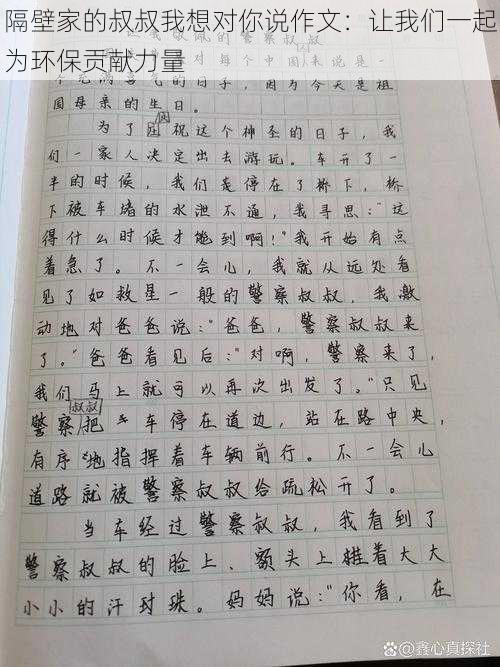 隔壁家的叔叔我想对你说作文：让我们一起
为环保贡献力量
的警察叔叔
对每个中国来说是一
个充满喜气的日子，因为今天是祖
国母亲的生日。
为了庆祝这个神圣的日子，我
们一家人决定出去游玩。车开了一
半的时候，我们是停在了桥下，桥
下被车堵的水泄不通，我寻思：“这
得什么时候才能到啊！”我开始有点
着急了。不一会儿，我就从远处看
见了如救星一般的警察叔叔，我激
动地对爸爸说：“爸爸，警察叔叔来
了。”爸爸看见后：“对啊，警察来了，
我们马上就可以再次出发了。”只见
警察叔叔把车停在道边，站在路中央，
有序地指挥着车辆前行。不一会儿
道路就被警察叔叔给疏松开了。
当车经过警察叔叔，我看到了
警察叔叔的脸上、额头上挂着大大
小小的汗珠。妈妈说：“你看，在
@鑫心真探社